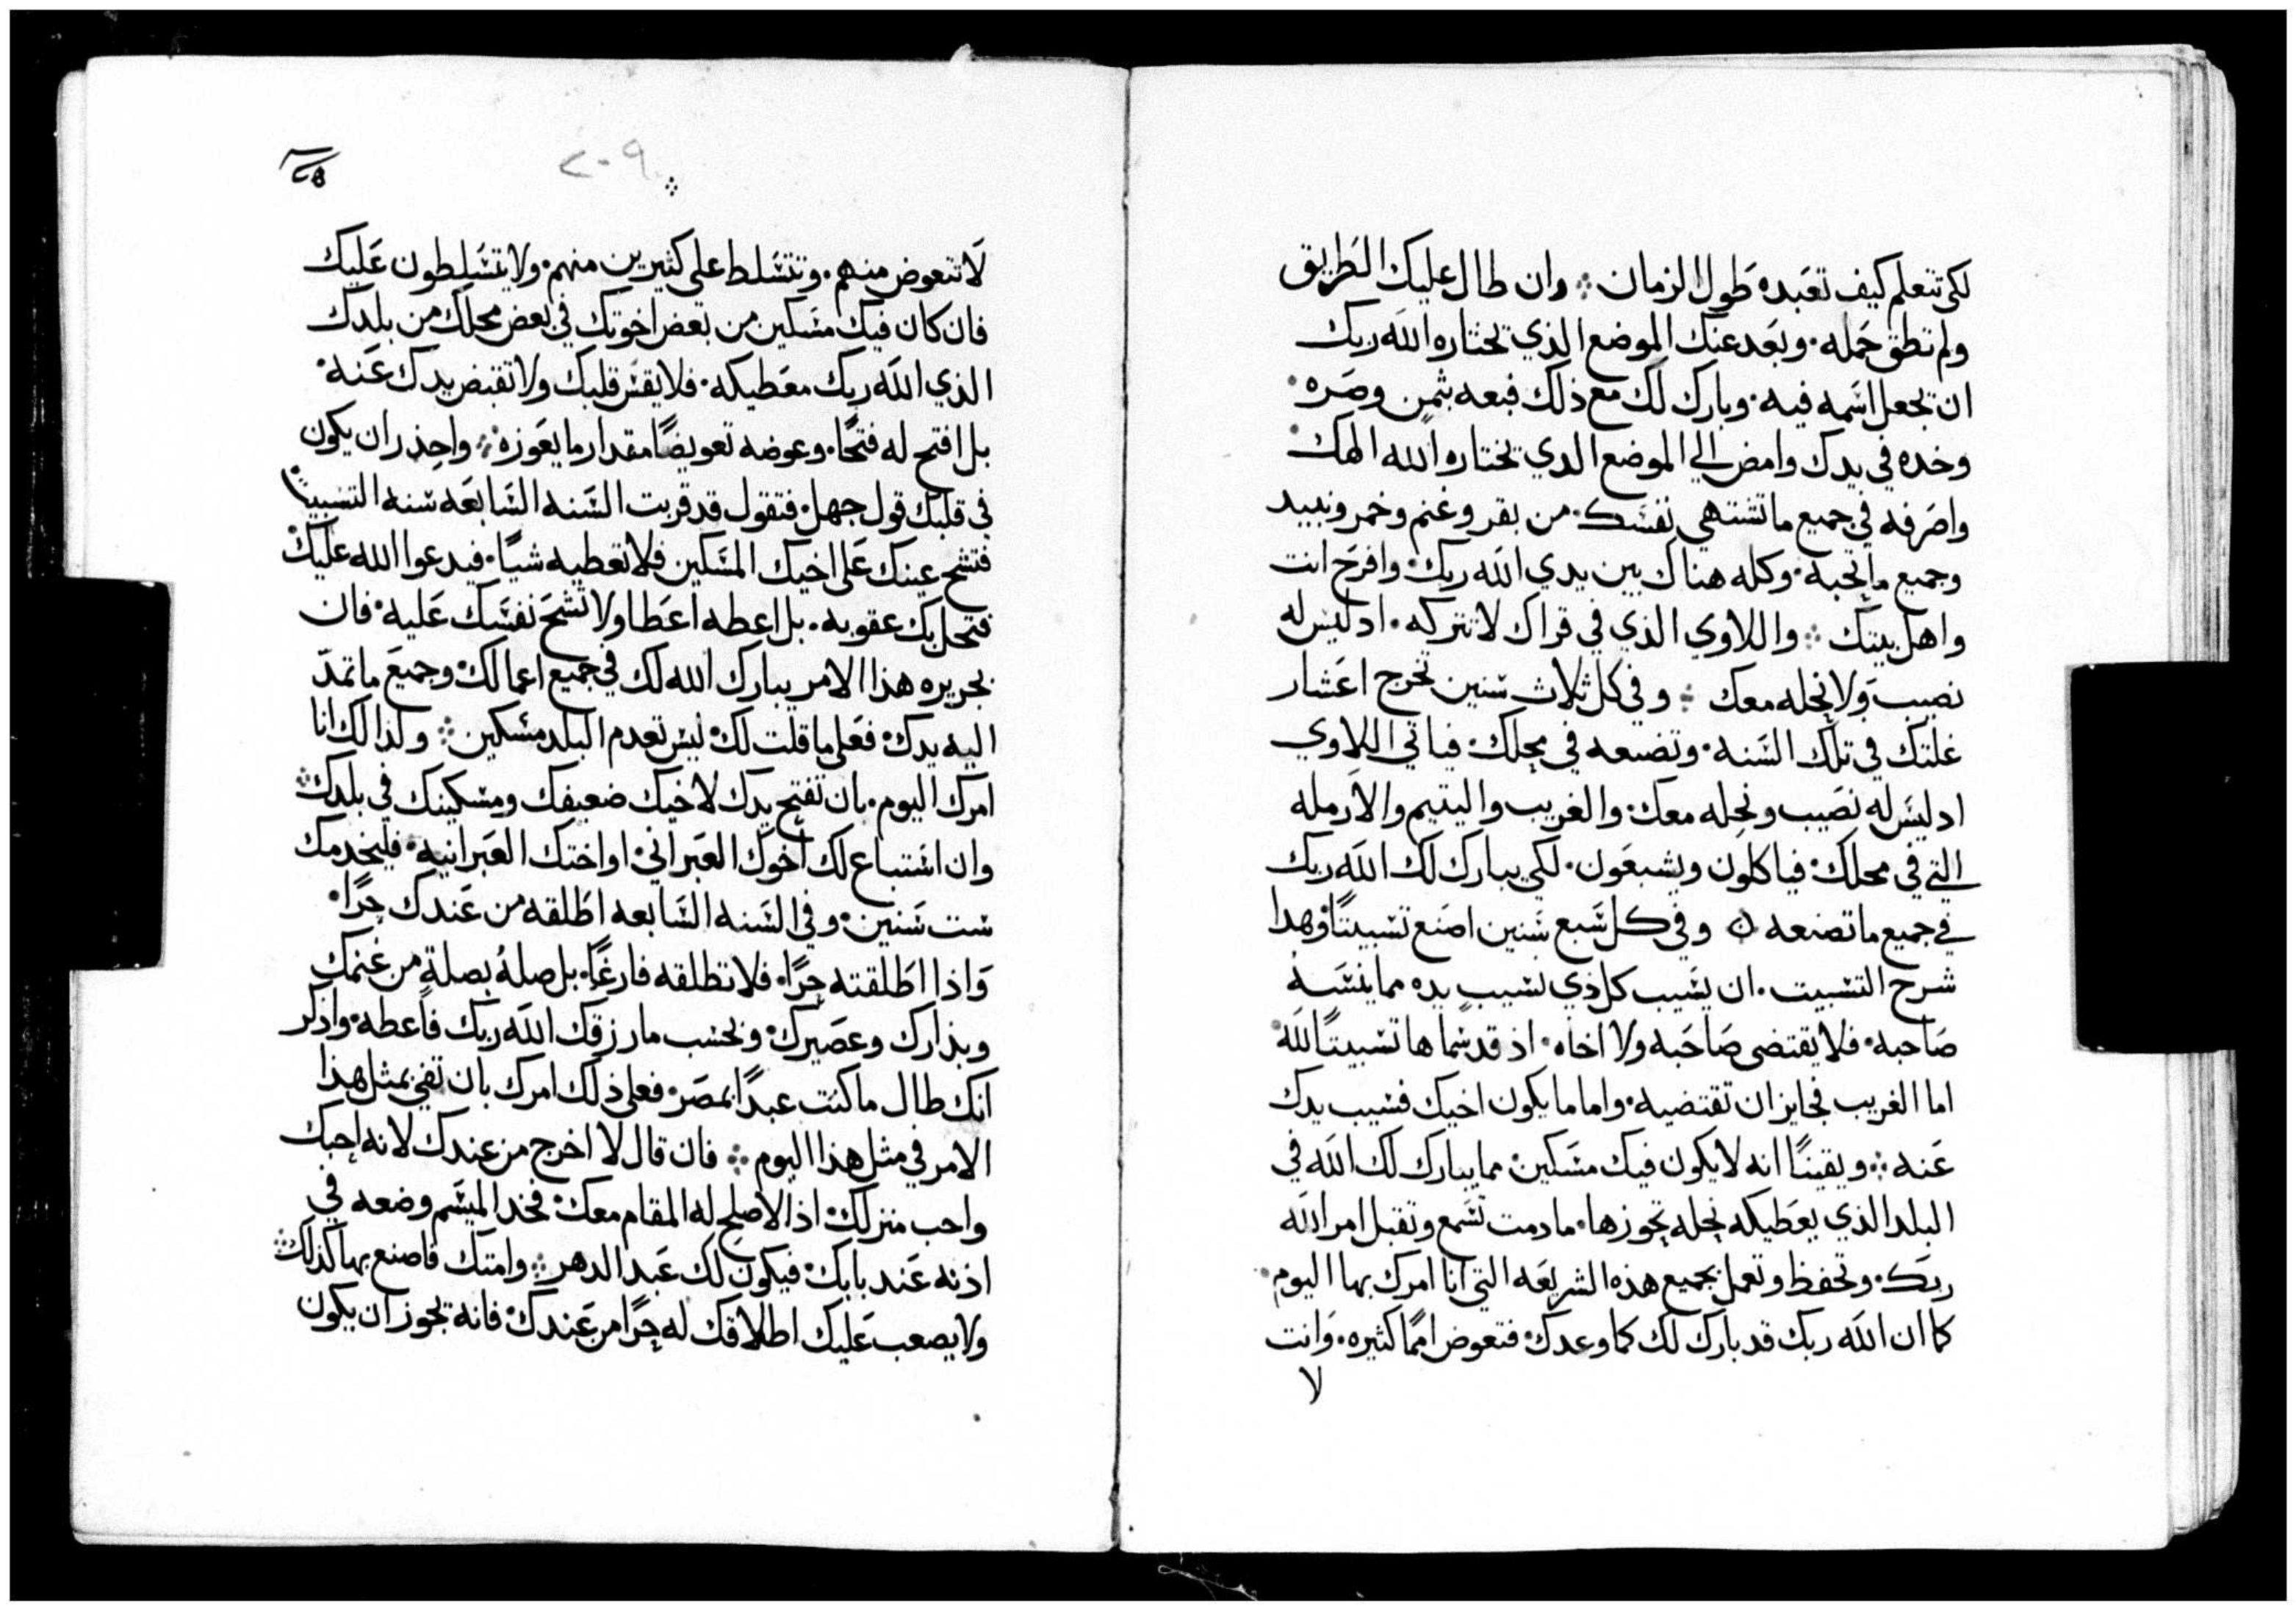 لكي تتعلم كيف تعبده طول الزمان ܀ وان طال عليك الطريق
ولم تطق حمله ٠ وبعد عنك الموضع الذي يختاره الله ربك
ان يجعل اسمه فيه ٠ وبارك لك مع ذلك فبعه بثمن وصره ٠
وخده في يدك وامض الي الموضع الدي يختاره الله الهك ٠
واصرفه في جميع ما تشتهي نفسك ٠ من بقر وغنم وخمر ونبيد
وجميع ما تحبه ٠ وكله هناك بين يدي الله ربك ٠ وافرح انت
واهل بيتك ܀ واللاوي الذي في قراك لا تتركه ٠ اد ليس له
نصيب ولا نحله معك ܀ وفي كل ثلاث سنين تخرج اعشار
غلتك في تلك السنه ٠ وتضعه في محلك ٠ فياتي اللاوي
اد ليس له نصيب ونحله معك ٠ والغريب واليتيم والارمله
التي في محلك ٠ فياكلون ويشبعون ٠ لكي يبارك لك الله ربك
في جميع ما تصنعه ܀ وفي كل سبع سنين اصنع تسييبًا ٠ وهدا
شرح التسييب ٠ ان يسيب كل ذي نسيب يده مما ينسه
صاحبه ٠ فلا يقتضى صاحبه ولا اخاه ٠ اذ قد سماها تسييبًا لله
اما الغريب فجايز ان تقتضيه ٠ واما ما يكون اخيك فسيب يدك
عنه ܀ ويقينًا انه لا يكون فيك مسكين ٠ مما يبارك لك الله في
البلد الذي يعطيكه نحله تحوزها ٠ ما دمت تسمع وتقبل امر الله
ربك ٠ وتحفظ وتعمل بجميع هذه الشريعه التي انا امرك بها اليوم ٠
كما ان الله ربك قد بارك لك كما وعدك ٠ فتعوض امما كثيره ٠ وانت
لا
٢٠٩
لا تتعوض منهم ٠ وتتسلط على كثيرين منهم ٠ ولا يتسلطون عليك
فان كان فيك مسكين من بعض اخوتك في بعض محلك من بلدك
الذي الله ربك معطيكه ٠ فلا يقس قلبك ولا تقبض يدك عنه ٠
بل افتح له فتحًا ٠ وعوضه تعويضًا مقدار ما يعوزه ܀ واحذر ان يكون
في قلبك قول جهل ٠ فتقول قد قربت السنه السابعه سنه التسييب ٠
فتشح عينك على اخيك المسكين فلا تعطيه شيًا ٠ فيدعوا الله عليك ٠
فتحل بك عقوبه ٠ بل اعطه اعطا ولا تشح نفسك عليه ٠ فان
بجريره هذا الامر يبارك الله لك في جميع اعمالك ٠ وجميع ما تمد
اليه يدك ٠ فعلى ما قلت لك ٠ ليس تعدم البلد مسكين ܀ ولذالك انا
امرك اليوم ٠ بان تفتح يدك لاخيك ضعيفك ومسكينك في بلدك ܀
وان استباع لك اخوك العبراني ٠ او اختك العبرانيه ٠ فليخدمك
ست سنين ٠ وفي السنه السابعه اطلقه من عندك حرًا ٠
واذا اطلقته حرًا ٠ فلا تطلقه فارغًا ٠ بل صله بصلةٍ من غنمك
وبذارك وعصيرك ٠ وبحسب ما رزقك الله ربك فاعطه ٠ واذكر
انك طال ما كنت عبدًا بمصر ٠ فعلى ذلك امرك بان تفي بمثل هذا
الامر في مثل هذا اليوم ܀ فان قال لا اخرج من عندك لانه احبك
واحب منزلك ٠ اذ الاصلح له المقام معك ٠ فخد الميسم وضعه في
اذنه عند بابك ٠ فيكون لك عبد الدهر ܀ وامتك فاصنع بها كذلك ܀
ولا يصعب عليك اطلاقك له حرًا من عندك ٠ فانه يجوز ان يكون